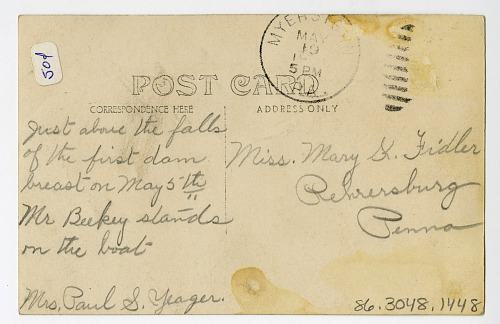 501
MYERSTOWN
MAY
19
5 PM
PA.
POST CARD
CORRESPONDENCE HERE
ADDRESS ONLY
Just above the falls
of the first dam
breast on May 5th
Mr Beekey stands
on the boat
Mrs. Paul S. Yeager.
Miss. Mary K. Fidler
Rehrersburg
Penna
86.3048.1448